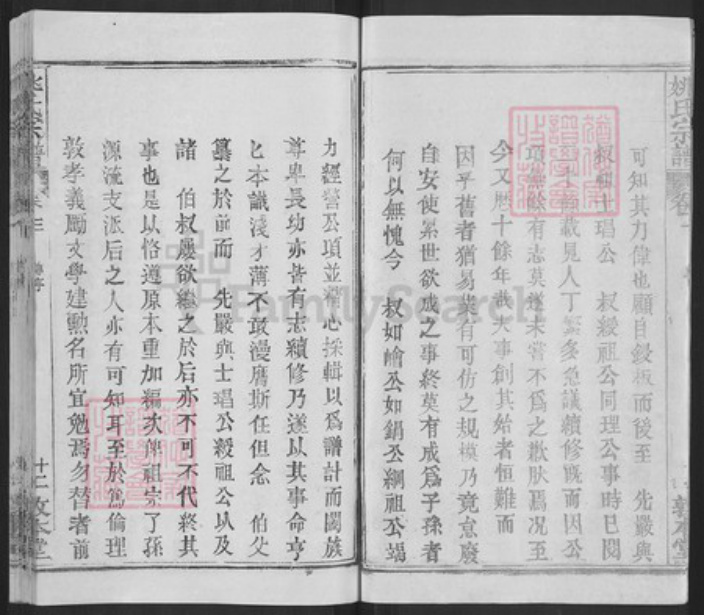 姚氏宗譜
可知其力偉也顧自鋟板而後至 先嚴與
叔和士琩公 叔綬祖公同理公事時已閱
載見人丁繁多急議續修既而因公
項無餘有志莫遂未嘗不爲之歉肰焉况至
今又歷十餘年哉夫事創其始者恒難而
因乎舊者猶易某有可仿之規模乃竟怠廢
自安使累世欲成之事終莫有成爲子孫者
何以無愧今 叔如嶒公如錦公綱祖公竭
力經營公項並精心採輯以爲譜計而闔族
尊卑長幼亦皆有志續修乃遂以其事命亨
匕本識淺才薄不敢漫膺斯任但念 伯父
纂之於前而 先嚴與士琩公綬祖公以及
諸 伯叔屢欲繼之於后亦不可不代終其
事也是以恪遵原本重加編次俾祖宗了孫
源流支派后之人亦有可知耳至於篤倫理
敦孝義勵文學建勲名所宜勉焉勿替者前
姚氏宗譜
十二 敦本堂
FamilySearch